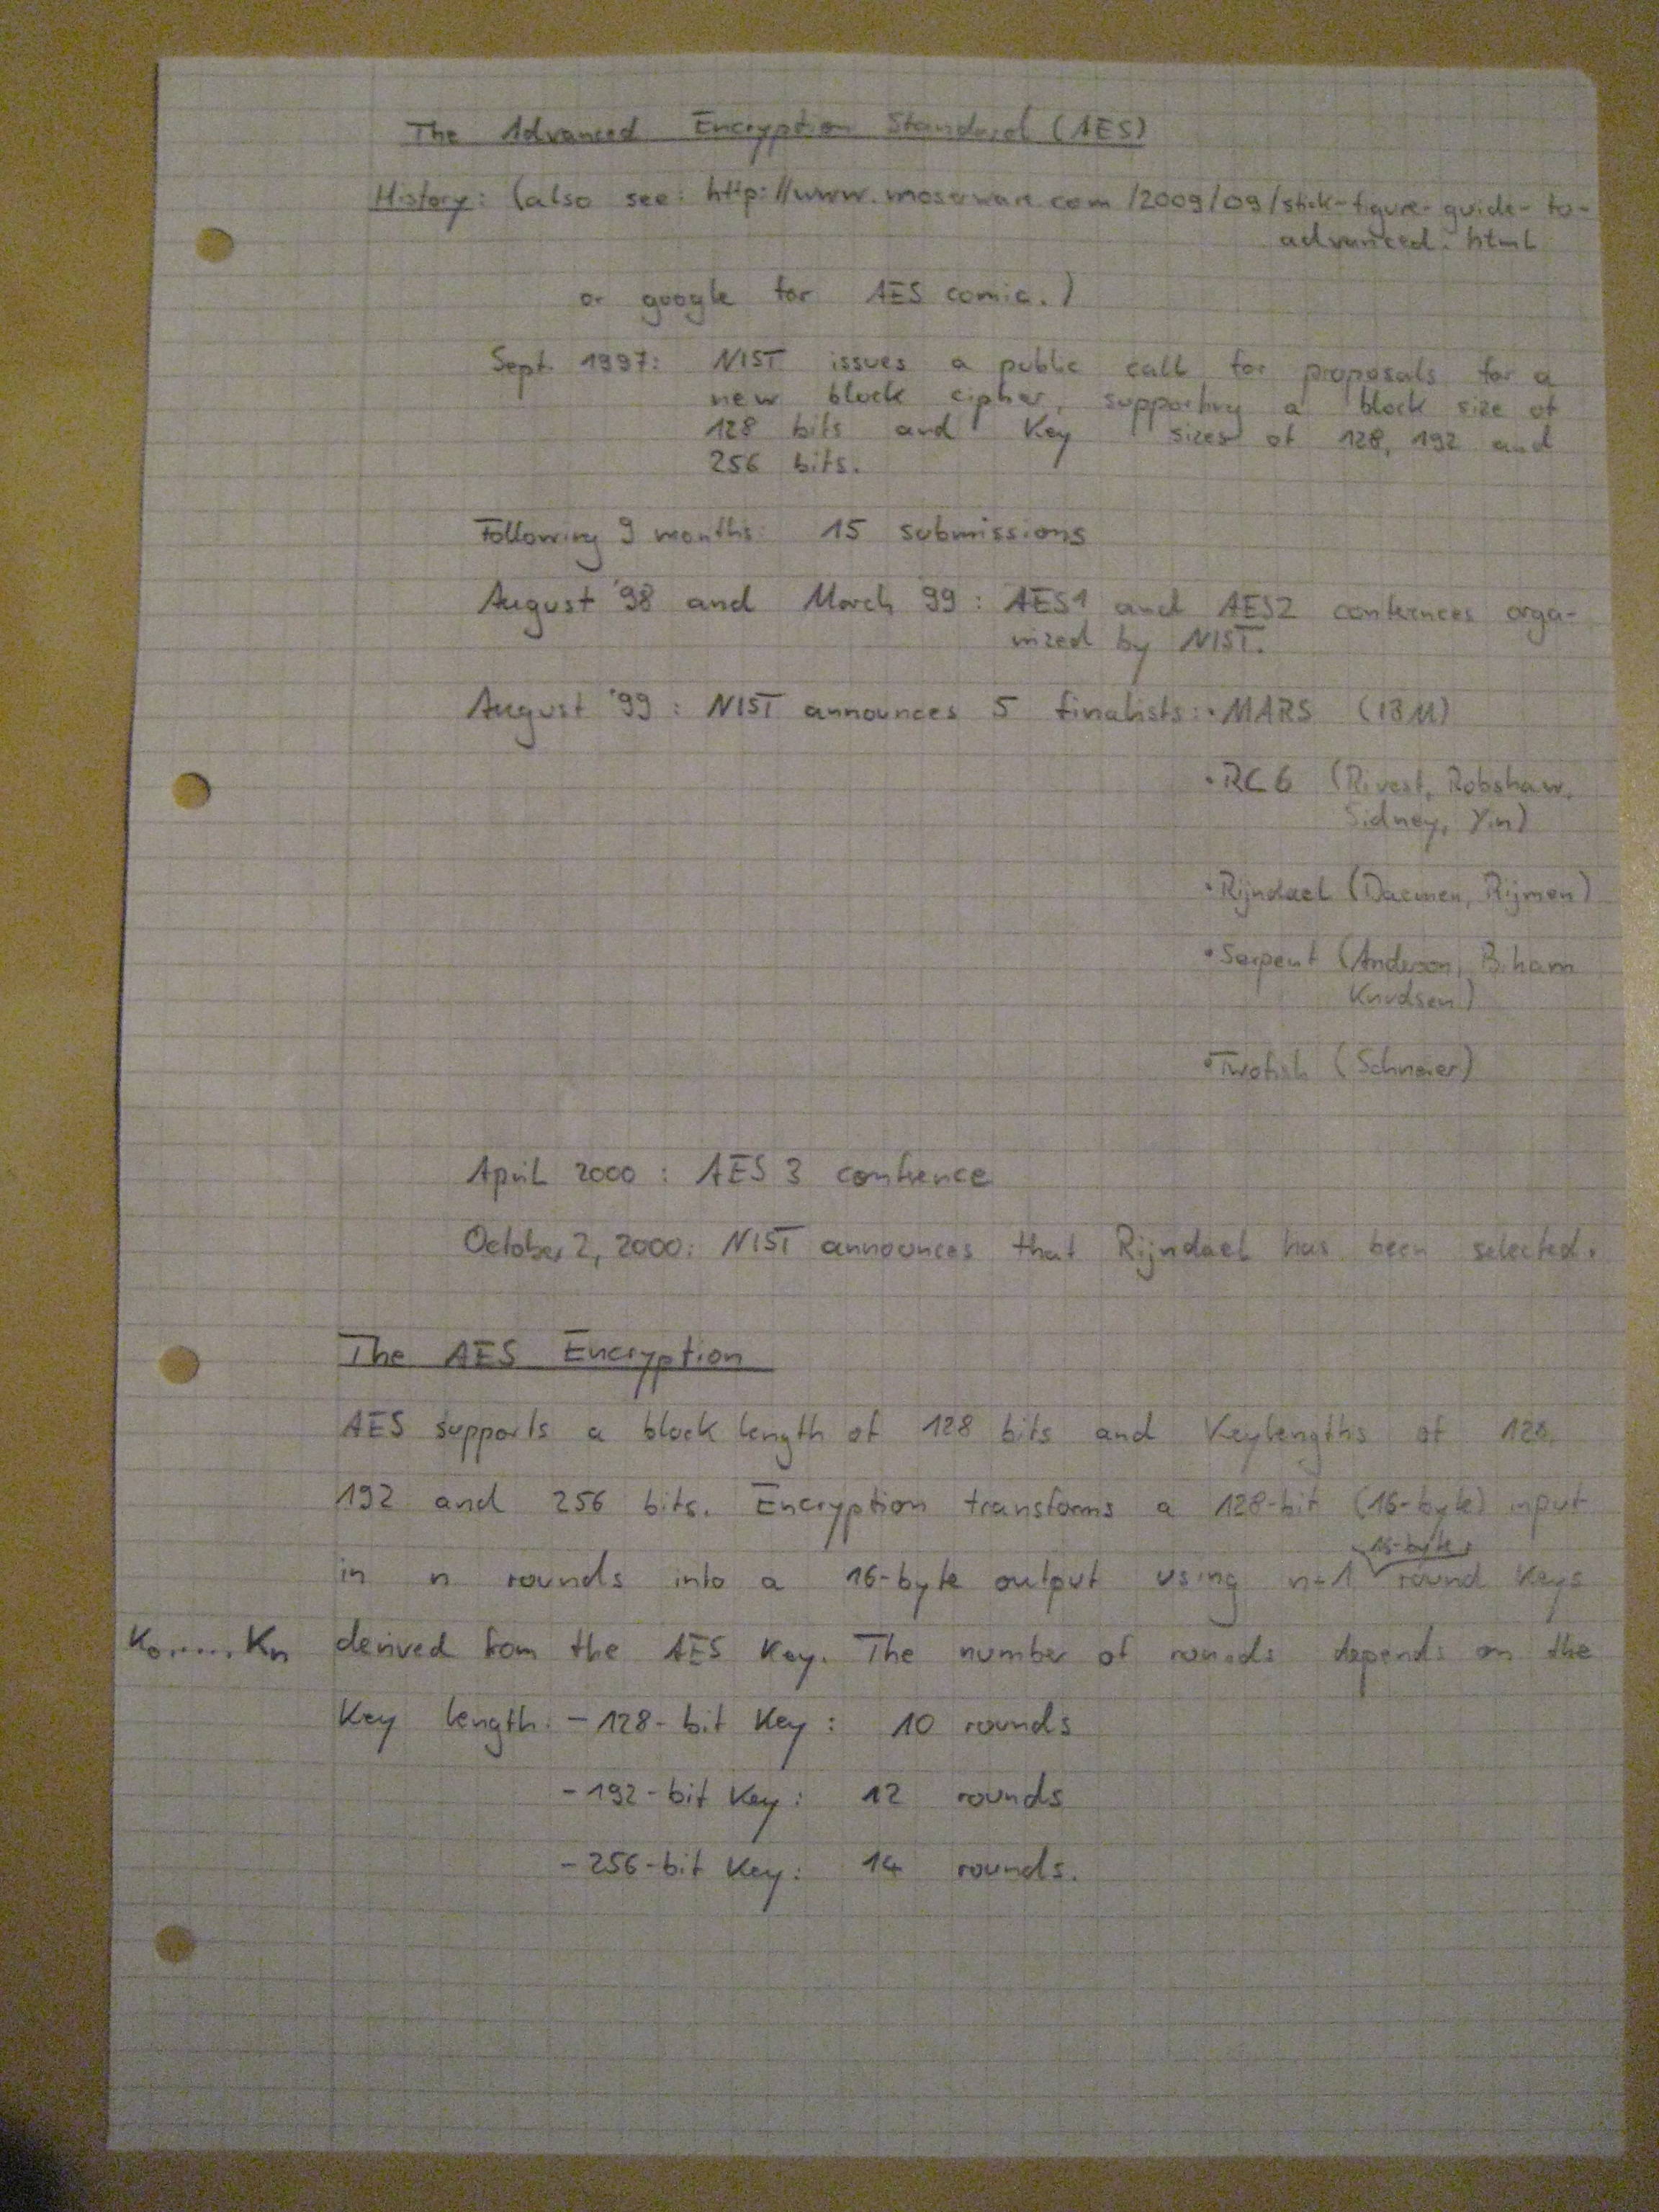 The Advanced Encryption Standard (AES)
History: (also see: http://www.moserware.com/2009/09/stick-figure-guide-to-
advanced.html
or google for AES comic.)
Sept. 1997: NIST issues a public call for proposals for a
new block cipher, supporting a block size of
128 bits and key sizes of 128, 192 and
256 bits.
Following 9 months: 15 submissions
August '98 and March '99: AES1 and AES2 confernces orga-
nized by NIST.
August '99: NIST announces 5 finalists: • MARS (IBM)
• RC6 (Rivest, Robshaw,
Sidney, Yin)
• Rijndael (Daemen, Rijmen)
• Serpent (Anderson, Biham
Knudsen)
• Twofish (Schneier)
April 2000: AES3 confrence
October 2, 2000: NIST announces that Rijndael has been selected.
The AES Encryption
AES supports a block length of 128 bits and Keylengths of 128,
192 and 256 bits. Encryption transforms a 128-bit (16-byte) input
16-byte
in n rounds into a 16-byte output using n+1 round keys
K0,....,Kn derived from the AES key. The number of rounds depends on the
key length: - 128-bit key: 10 rounds
- 192-bit key: 12 rounds
- 256-bit key: 14 rounds.